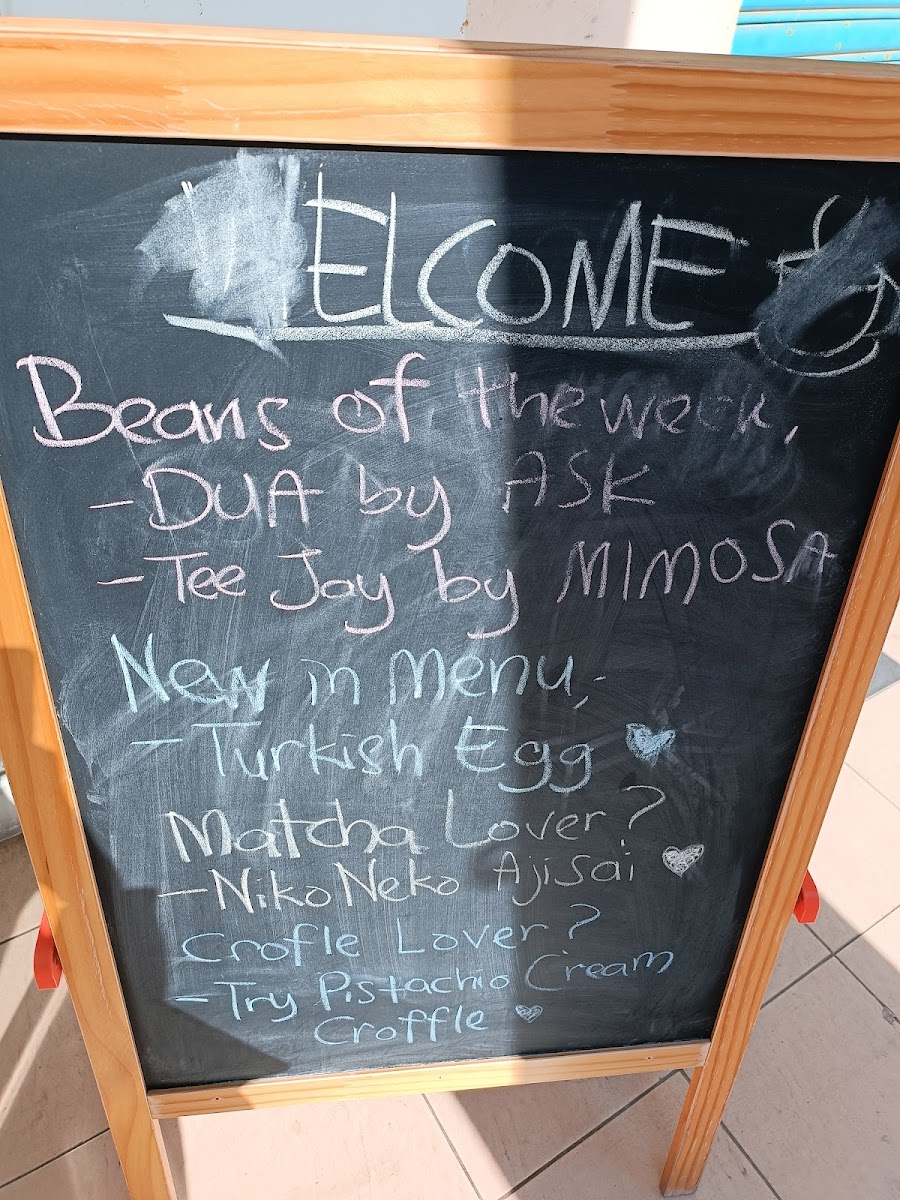 ELCOME
Beans of the week,
- DUA by ASK
- Tee Jay by MIMOSA
New in menu,-
- Turkish Egg
Matcha Lover?
- Niko Neko Ajisai
Crofle Lover?
- Try Pistachio Cream
Croffle